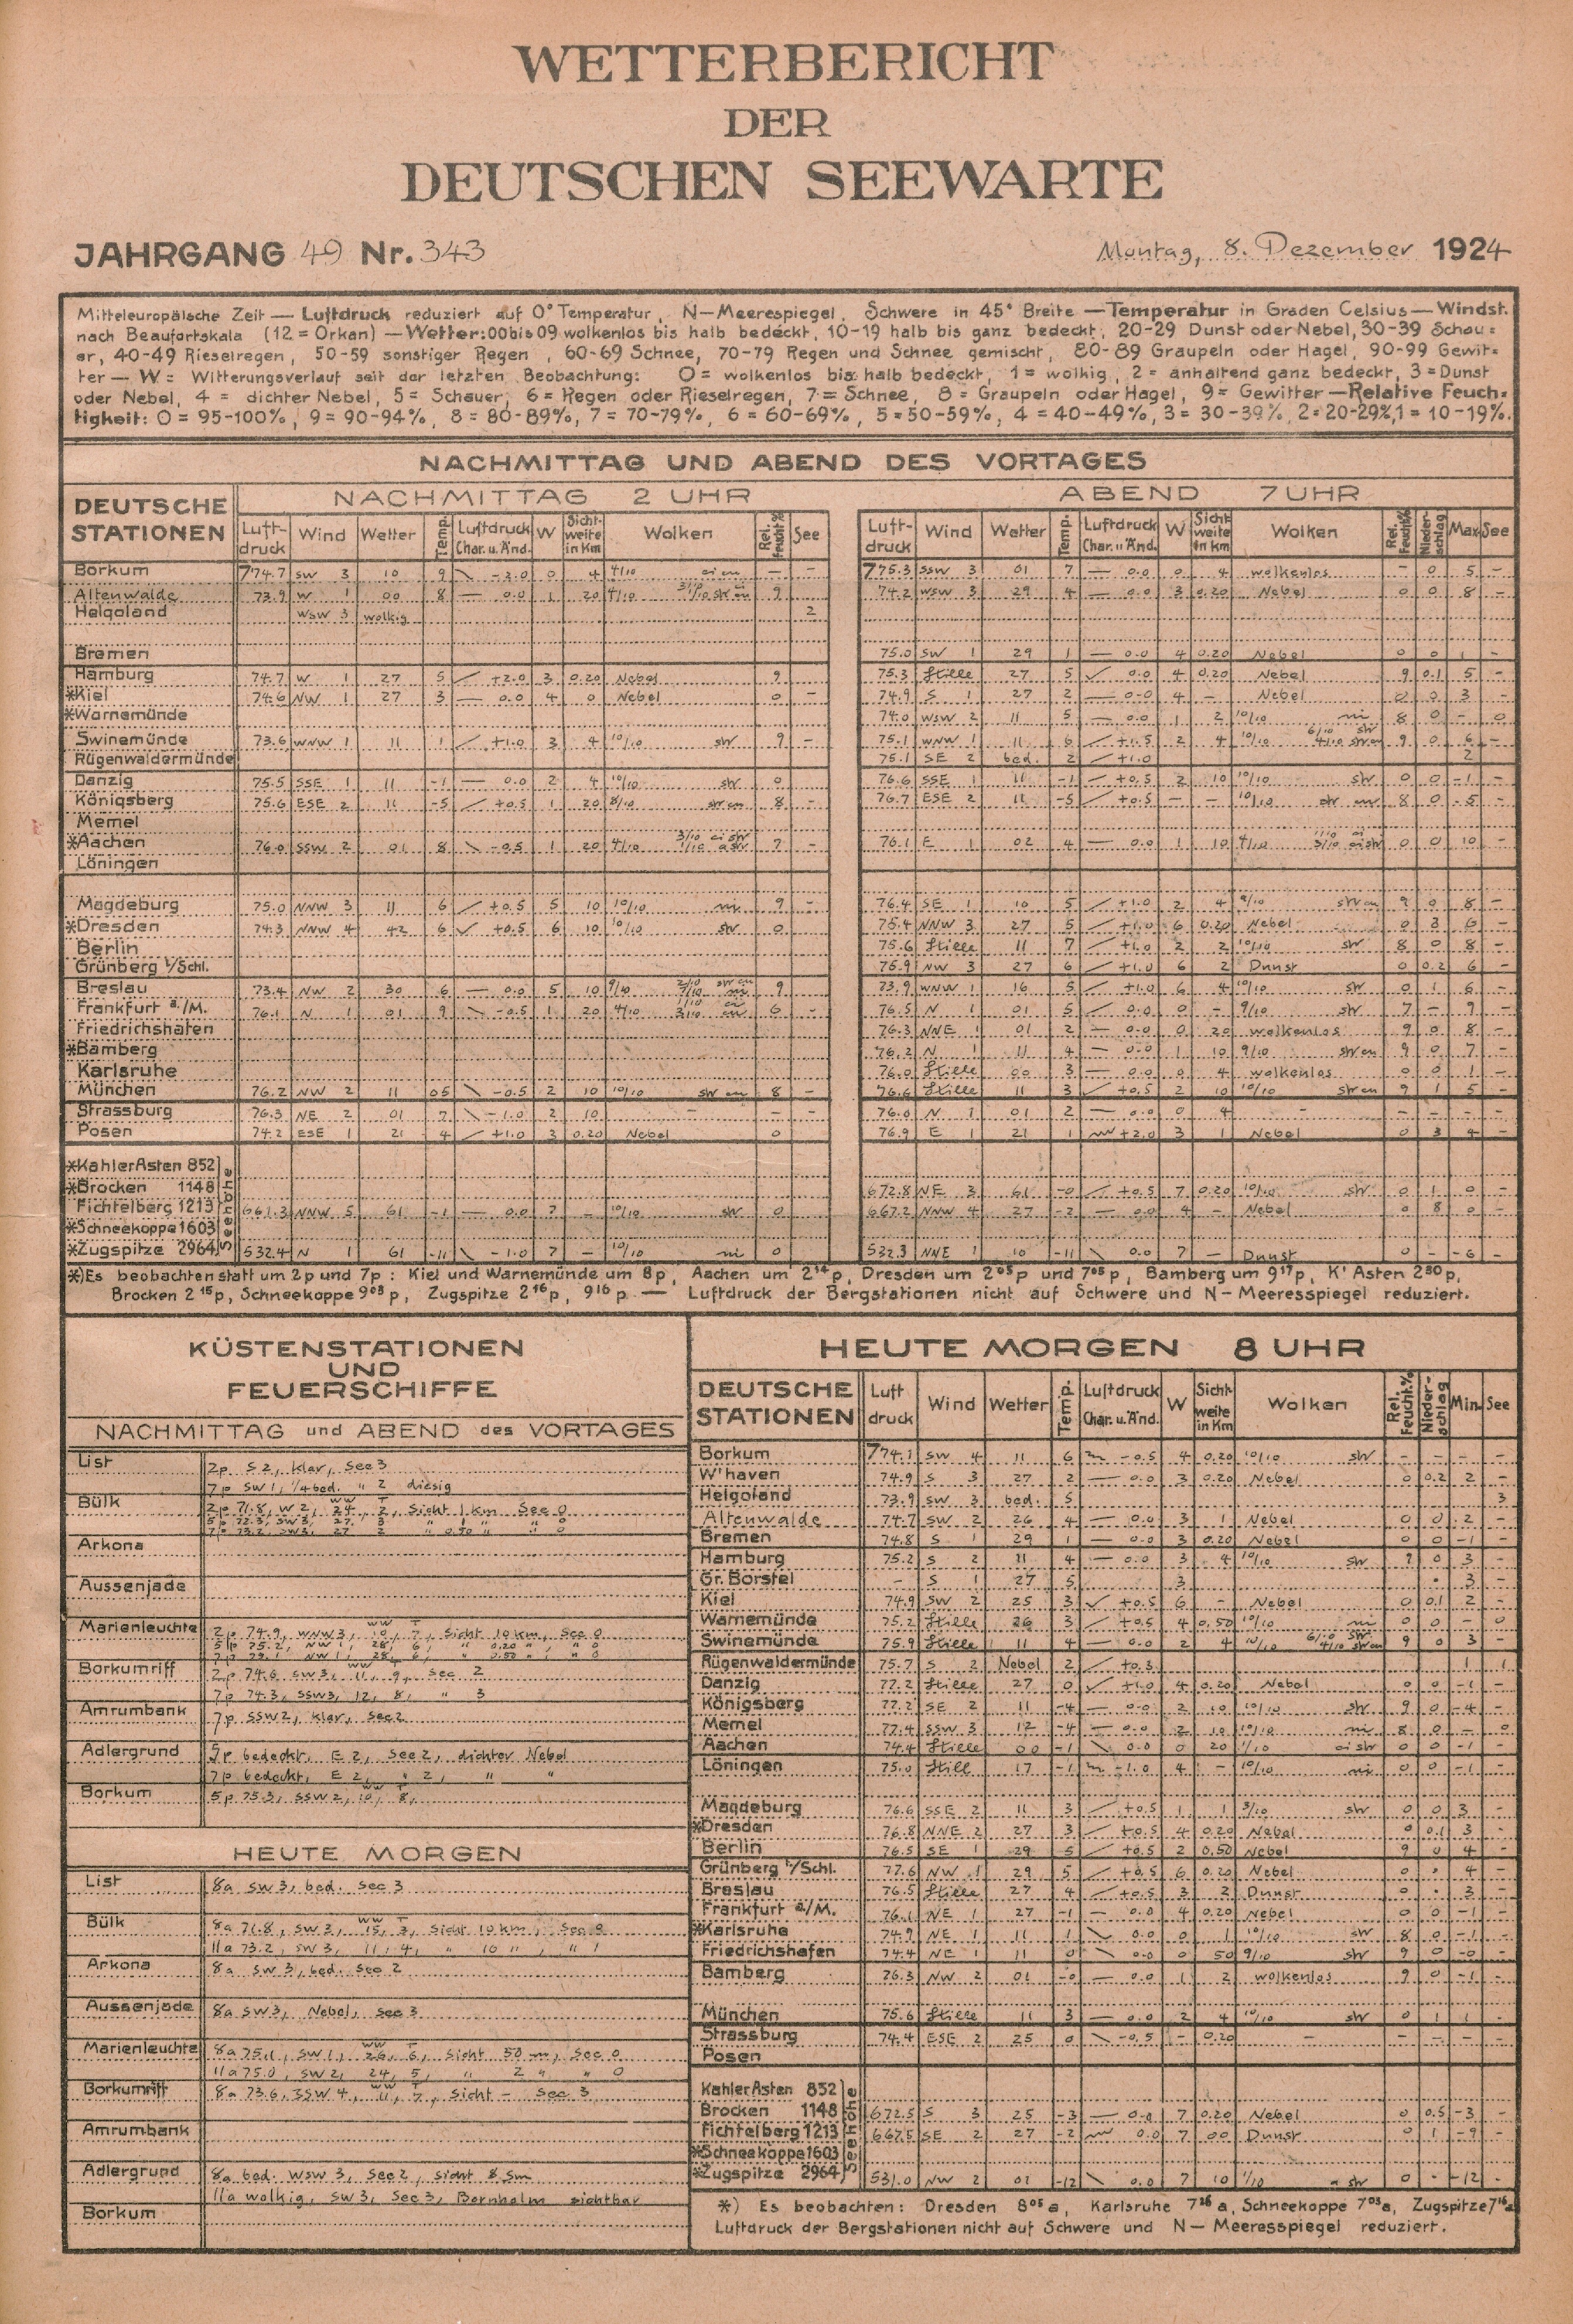 WETTERBERICHT
DER
DEUTSCHEN SEEWARTE
JAHRGANG 49 Nr. 343 Montag, 8. Dezember 1924
Mitteleuropäische Zeit — Luftdruck reduziert auf 0° Temperatur, N—Meerespiegel, Schwere in 45° Breite — Temperatur in Graden Celsius — Windst.
nach Beaufortskala (12 = Orkan) — Wetter: 00 bis 09 wolkenlos bis halb bedeckt, 10-19 halb bis ganz bedeckt, 20-29 Dunst oder Nebel, 30-39 Schau=
er, 40-49 Rieselregen, 50-59 sonstiger Regen, 60-69 Schnee, 70-79 Regen und Schnee gemischt, 80-89 Graupeln oder Hagel, 90-99 Gewit=
ter — W = Witterungsverlauf seit der letzten Beobachtung: 0 = wolkenlos bis halb bedeckt, 1 = wolkig, 2 = anhaltend ganz bedeckt, 3 = Dunst
oder Nebel, 4 = dichter Nebel, 5 = Schauer, 6 = Regen oder Rieselregen, 7 = Schnee, 8 = Graupeln oder Hagel, 9 = Gewitter — Relative Feuch=
tigkeit: 0 = 95-100%, 9 = 90-94%, 8 = 80-89%, 7 = 70-79%, 6 = 60-69%, 5 = 50-59%, 4 = 40-49%, 3 = 30-39%, 2 = 20-29%, 1 = 10-19%.
NACHMITTAG UND ABEND DES VORTAGES
DEUTSCHE STATIONEN
NACHMITTAG 2 UHR ABEND 7 UHR
Luft-druck Wind Wetter Temp. Luftdruck Char. u. Änd. W Sicht-weite in Km Wolken Rel. Feucht.% See
Luft-druck Wind Wetter Temp. Luftdruck Char. u. Änd. W Sicht-weite in Km Wolken Rel. Feucht.% Nieder-schlag Max. See
Borkum 774.7 SW 3 10 9 -2.0 0 4 4/10 — — 775.3 SSW 3 01 7 — 0.0 0 4 wolkenlos — 0 5 —
Altenwalde 73.9 W 1 00 8 — 0.0 1 20 4/10 9 — 74.2 WSW 3 29 4 — 0.0 3 0.20 Nebel 0 0 8 —
Helgoland WSW 3 wolkig 2
Bremen 75.0 SW 1 29 1 — 0.0 4 0.20 Nebel 0 0 1 —
Hamburg 74.7 W 1 27 5 +2.0 3 0.20 Nebel 9 75.3 Stille 27 5 0.0 4 0.20 Nebel 9 0.1 5 —
*Kiel 74.6 NW 1 27 3 — 0.0 4 0 Nebel 0 — 74.9 S 1 27 2 — 0.0 4 — Nebel 0 0 3 —
*Warnemünde 74.0 WSW 2 11 5 — 0.0 1 2 10/10 ni 8 0 — 0
Swinemünde 73.6 WNW 1 11 1 +1.0 3 4 10/10 str 9 — 75.1 WNW 1 11 6 +1.5 2 4 10/10 9 0 6 —
Rügenwaldermünde 75.1 SE 2 bed. 2 +1.0 2
Danzig 75.5 SSE 1 11 -1 — 0.0 2 4 10/10 str 0 76.6 SSE 1 11 -1 +0.5 2 10 10/10 str 0 0 -1 —
Königsberg 75.6 ESE 2 11 -5 +0.5 1 20 8/10 str cu 8 — 76.7 ESE 2 11 -5 +0.5 — — 10/10 8 0 -5 —
Memel
*Aachen 76.0 SSW 2 01 8 -0.5 1 20 4/10 7 — 76.1 E 1 02 4 — 0.0 1 10 4/10 0 0 10 —
Löningen
Magdeburg 75.0 NNW 3 11 6 +0.5 5 10 10/10 ni 9 — 76.4 SE 1 10 5 +1.0 2 4 9/10 str cu 9 0 8 —
*Dresden 74.3 NNW 4 42 6 +0.5 6 10 10/10 str 0 75.4 NNW 3 27 5 +1.0 6 0.20 Nebel 0 3 6 —
Berlin 75.6 Stille 11 7 +1.0 2 2 10/10 str 8 0 8 —
Grünberg i/Schl. 75.9 NW 3 27 6 +1.0 6 2 Dunst 0 0.2 6 —
Breslau 73.4 NW 2 30 6 — 0.0 5 10 9/10 9 73.9 WNW 1 16 5 +1.0 6 4 10/10 str 0 1 6 —
Frankfurt a./M. 76.1 N 1 01 9 -0.5 1 20 4/10 6 — 76.5 N 1 01 5 0.0 0 — 9/10 str 7 — 9 —
Friedrichshafen 76.3 NNE 1 01 2 — 0.0 0 20 wolkenlos 9 0 8 —
*Bamberg 76.2 N 1 11 4 — 0.0 1 10 9/10 str cu 9 0 7 —
Karlsruhe 76.0 Stille 00 3 — 0.0 0 4 wolkenlos 0 0 1 —
München 76.2 NW 2 11 05 -0.5 2 10 10/10 str cu 8 — 76.6 Stille 11 3 +0.5 2 10 10/10 str cu 9 1 5 —
Strassburg 76.3 NE 2 01 7 -1.0 2 10 — — — 76.0 N 1 01 2 — 0.0 0 4 — — — — —
Posen 74.2 ESE 1 21 4 +1.0 3 0.20 Nebel 0 76.9 E 1 21 1 +2.0 3 1 Nebel 0 3 4 —
Seehöhe
*Kahler Asten 852
*Brocken 1148 672.8 NE 3 61 -0 +0.5 7 0.20 10/10 str 0 1 0 —
Fichtelberg 1213 661.3 NNW 5 61 -1 — 0.0 7 — 10/10 str 0 667.2 NNW 4 27 -2 0.0 4 — Nebel 0 8 0 —
*Schneekoppe 1603
*Zugspitze 2964 532.4 N 1 61 -11 -1.0 7 — 10/10 ni 0 532.3 NNE 1 10 -11 0.0 7 — Dunst 0 — -6 —
*) Es beobachten statt um 2p und 7p: Kiel und Warnemünde um 8p, Aachen um 2¹⁴p, Dresden um 2⁰⁵p und 7⁰⁵p, Bamberg um 9¹⁷p, K' Asten 2³⁰p,
Brocken 2¹⁵p, Schneekoppe 9⁰³p, Zugspitze 2¹⁶p, 9¹⁶p — Luftdruck der Bergstationen nicht auf Schwere und N—Meeresspiegel reduziert.
KÜSTENSTATIONEN
UND
FEUERSCHIFFE
NACHMITTAG und ABEND des VORTAGES
List 2p S 2, klar, See 3
7p SW 1, 1/4 bed. " 2 diesig
Bülk 2p 71.8, W 2, 24, 2, Sicht 1 km See 0
5p 72.3, SW 3, 27, 3 " 1 " " 0
7p 73.2, SW 3, 27, 2 " 0.50 " " 0
Arkona
Aussenjade
Marienleuchte 2p 74.9, WNW 3, 10, 7, Sicht 10 km, See 0
5p 75.2, NW 1, 28, 6, " 0.20 " " 0
Borkumriff 2p 74.6, SW 3, 11, 9, See 2
7p 74.3, SSW 3, 12, 8, " 3
Amrumbank 7p SSW 2, klar, See 2
Adlergrund 5p bedeckt, E 2, See 2, dichter Nebel
7p bedeckt, E 2, " 2, " "
Borkum 5p 75.3, SSW 2, 10, 8,
HEUTE MORGEN
List 8a SW 3, bed. See 3
Bülk 8a 71.8, SW 3, 15, 3, Sicht 10 km, See 0
11a 73.2, SW 3, 11, 4, " 10 ", " 1
Arkona 8a SW 3, bed. See 2
Aussenjade 8a SW 3, Nebel, See 3
Marienleuchte 8a 75.1, SW 1, 26, 6, Sicht 50 m, See 0
11a 75.0, SW 2, 24, 5, " 2 " " 0
Borkumriff 8a 73.6, SSW 4, 11, 7, Sicht — See 3
Amrumbank
Adlergrund 8a bed. WSW 3, See 2, sicht 8 sm
11a wolkig, SW 3, See 3, Bornholm sichtbar
Borkum
HEUTE MORGEN 8 UHR
DEUTSCHE STATIONEN Luft druck Wind Wetter Temp. Luftdruck Char. u. Änd. W Sicht-weite in Km Wolken Rel. Feucht.% Nieder-schlag Min. See
Borkum 774.1 SW 4 11 6 -0.5 4 0.20 10/10 str — — — —
W'haven 74.9 S 3 27 2 — 0.0 3 0.20 Nebel 0 0.2 2 —
Helgoland 73.9 SW 3 bed. 5 3
Altenwalde 74.7 SW 2 26 4 — 0.0 3 1 Nebel 0 0 2 —
Bremen 74.8 S 1 29 1 — 0.0 3 0.20 Nebel 0 0 -1 —
Hamburg 75.2 S 2 11 4 — 0.0 3 4 10/10 str 9 0 3 —
Gr. Borstel — S 1 27 5 3 . 3 —
Kiel 74.9 SW 2 25 3 +0.5 6 — Nebel 0 0.1 2 —
Warnemünde 75.2 Stille 26 3 +0.5 4 0.50 10/10 ni 0 0 — 0
Swinemünde 75.9 Stille 11 4 — 0.0 2 4 10/10 9 0 3 —
Rügenwaldermünde 75.7 S 2 Nebel 2 +0.3 1 1
Danzig 77.2 Stille 27 0 +1.0 4 0.20 Nebel 0 0 -1 —
Königsberg 77.2 SE 2 11 -4 — 0.0 2 10 10/10 str 9 0 -4 —
Memel 77.4 SSW 3 12 -4 — 0.0 2 10 10/10 ni 8 0 — 0
Aachen 74.4 Stille 00 -1 0.0 0 20 1/10 ci str 0 0 -1 —
Löningen 75.0 Still 17 -1 -1.0 4 — 10/10 ni 0 0 -1
Magdeburg 76.6 SSE 2 11 3 +0.5 1 1 3/10 str 0 0 3 —
*Dresden 76.8 NNE 2 27 3 +0.5 4 0.20 Nebel 0 0.1 3 —
Berlin 76.5 SE 1 29 5 +0.5 2 0.50 Nebel 9 0 4 —
Grünberg i/Schl. 77.6 NW 1 29 5 +0.5 6 0.20 Nebel 0 . 4 —
Breslau 76.5 Stille 27 4 +0.5 3 2 Dunst 0 . 3 —
Frankfurt a/M. 76.1 NE 1 27 -1 — 0.0 4 0.20 Nebel 0 0 -1 —
*Karlsruhe 74.9 NE 1 11 1 0.0 0 1 10/10 str 8 0 -1
Friedrichshafen 74.4 NE 1 11 0 0.0 0 50 9/10 str 9 0 -0 —
Bamberg 76.3 NW 2 01 -0 — 0.0 1 2 wolkenlos 9 0 -1 —
München 75.6 Stille 11 3 — 0.0 2 4 10/10 str 0 1 1 —
Strassburg 74.4 ESE 2 25 0 -0.5 — 0.20 — — — — —
Posen
Seehöhe
Kahler Asten 852
Brocken 1148 672.5 S 3 25 -3 — 0.0 7 0.20 Nebel 0 0.5 -3 —
Fichtelberg 1213 667.5 SE 2 27 -2 0.0 7 00 Dunst 0 1 -9 —
*Schneekoppe 1603
*Zugspitze 2964 531.0 NW 2 02 -12 0.0 7 10 1/10 a str 0 . -12 —
*) Es beobachten: Dresden 8⁰⁵a, Karlsruhe 7²⁶a, Schneekoppe 7⁰³a, Zugspitze 7¹⁶a
Luftdruck der Bergstationen nicht auf Schwere und N—Meeresspiegel reduziert.